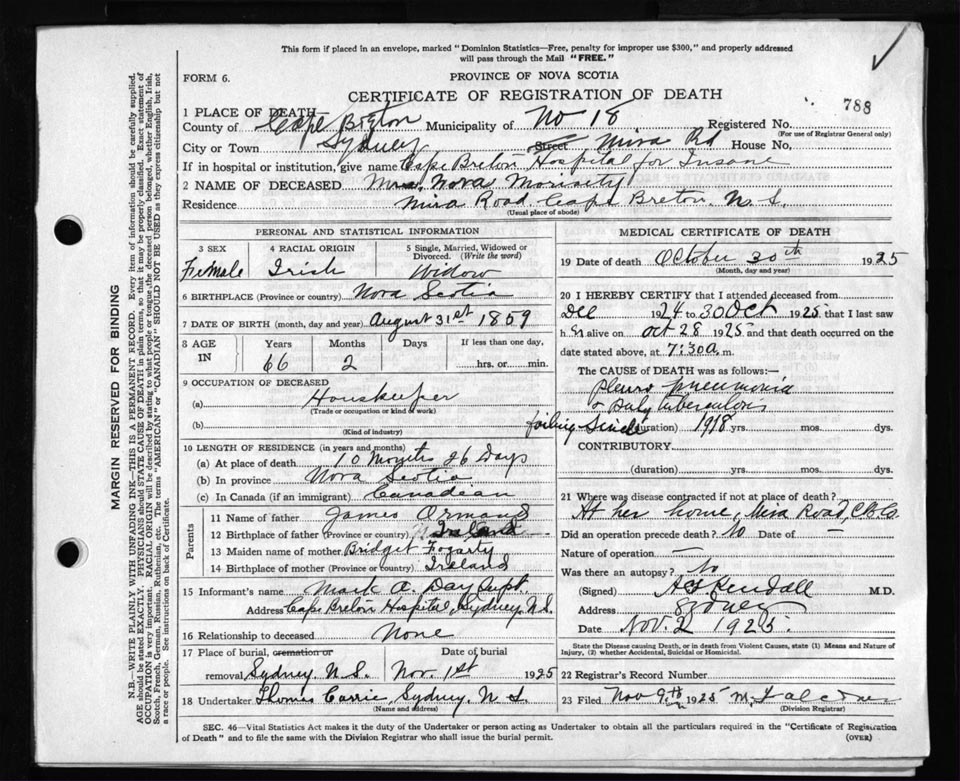 This form if placed in an envelope, marked "Dominion Statistics—Free, penalty for improper use $300," and properly addressed
will pass through the Mail "FREE."
FORM 6.
PROVINCE OF NOVA SCOTIA
CERTIFICATE OF REGISTRATION OF DEATH
788
1 PLACE OF DEATH
County of Cape Breton Municipality of No 18 Registered No.
(For use of Registrar General only)
City or Town Sydney Street Mira Rd House No.
If in hospital or institution, give name Cape Breton Hospital for Insane
2 NAME OF DECEASED Mrs. Nora Moriarty
Residence Mira Road Cape Breton. N.S.
(Usual place of abode)
PERSONAL AND STATISTICAL INFORMATION
3 SEX 4 RACIAL ORIGIN 5 Single, Married, Widowed or
Divorced. (Write the word)
Female Irish Widow
6 BIRTHPLACE (Province or country) Nova Scotia
7 DATE OF BIRTH (month, day and year) August 31st 1859
8 AGE IN Years Months Days If less than one day,
66 2 hrs. or min.
9 OCCUPATION OF DECEASED
(a) Houskeeper
(Trade or occupation or kind of work)
(b)
(Kind of industry)
10 LENGTH OF RESIDENCE (in years and months)
(a) At place of death 10 Months 26 Days
(b) In province Nova Scotia
(c) In Canada (if an immigrant) Canadean
Parents
11 Name of father James Ormand
12 Birthplace of father (Province or country) Ireland
13 Maiden name of mother Bridget Fogarty
14 Birthplace of mother (Province or Country) Ireland
15 Informant's name Mark A. Day Supt.
Address Cape Breton Hospital, Sydney, N.S.
16 Relationship to deceased None
17 Place of burial, cremation or Date of burial
removal Sydney N.S. Nov. 1st 1925
18 Undertaker Thomas Carrie, Sydney, N.S.
(Name and address)
MEDICAL CERTIFICATE OF DEATH
19 Date of death October 30th 1925
(Month, day and year)
20 I HEREBY CERTIFY that I attended deceased from
Dec 1924 to 30 Oct 1925 that I last saw
h er alive on Oct 28 1925 and that death occurred on the
date stated above, at 7:30a. m.
The CAUSE OF DEATH was as follows:—
Pleuro pneumonia
tuberculosis
failing since (duration) 1918 yrs. mos. dys.
CONTRIBUTORY.
(duration) yrs. mos. dys.
21 Where was disease contracted if not at place of death?
At her home, Mira Road, C.B. Co.
Did an operation precede death? no Date of
Nature of operation
Was there an autopsy? no
(Signed) Kendall M.D.
Address Sydney
Date Nov. 2 1925.
State the Disease causing Death, or in death from Violent Causes, state (1) Means and Nature of
Injury, (2) whether Accidental, Suicidal or Homicidal.
22 Registrar's Record Number
23 Filed Nov 9th 1925
(Division Registrar)
SEC. 46—Vital Statistics Act makes it the duty of the Undertaker or person acting as Undertaker to obtain all the particulars required in the "Certificate of Registration
of Death" and to file the same with the Division Registrar who shall issue the burial permit.
(OVER)
MARGIN RESERVED FOR BINDING
N.B.—WRITE PLAINLY WITH UNFADING INK—THIS IS A PERMANENT RECORD. Every item of information should be carefully supplied.
AGE should be stated EXACTLY. PHYSICIANS should STATE CAUSE OF DEATH in plain terms, so that it may be properly classified. Exact statement of
OCCUPATION is very important. RACIAL ORIGIN will be described by stating to what people or tongue, the deceased person belonged, whether English, Irish,
Scotch, French, German, Russian, Ruthenian, etc. The terms "AMERICAN" or "CANADIAN" SHOULD NOT BE USED as they express citizenship but not
a race or people. See instructions on back of Certificate.